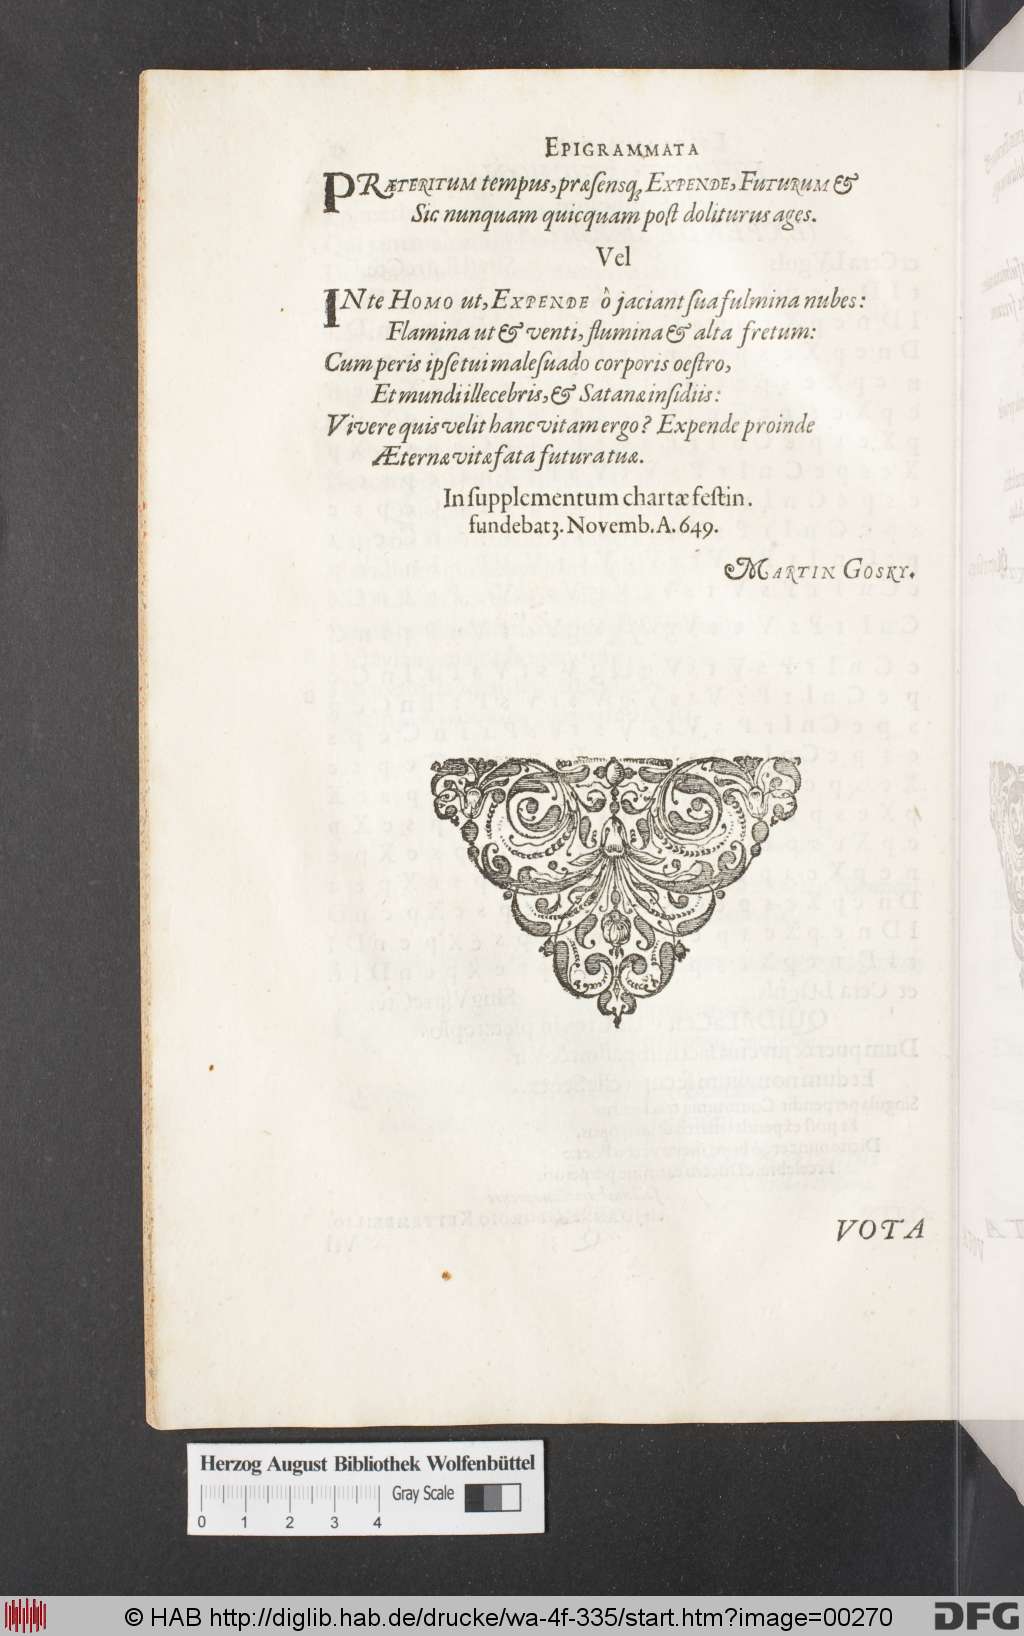 EPIGRAMMATA
PRÆTERITUM tempus, præsensq; EXPENDE, FUTURUM &
Sic nunquam quicquam post doliturus ages.
Vel
IN te HOMO ut, EXPENDE ò jaciant sua fulmina nubes:
Flamina ut & venti, flumina & alta fretum:
Cum peris ipse tui malesuado corporis oestro,
Et mundi illecebris, & Satanæ insidiis:
Vivere quis velit hanc vitam ergo? Expende proinde
Æternæ vitæ fata futura tuæ.
In supplementum chartæ festin.
fundebat 3. Novemb. A. 649.
MARTIN GOSKY.
VOTA
Herzog August Bibliothek Wolfenbüttel
Gray Scale
0 1 2 3 4
© HAB http://diglib.hab.de/drucke/wa-4f-335/start.htm?image=00270
DFG